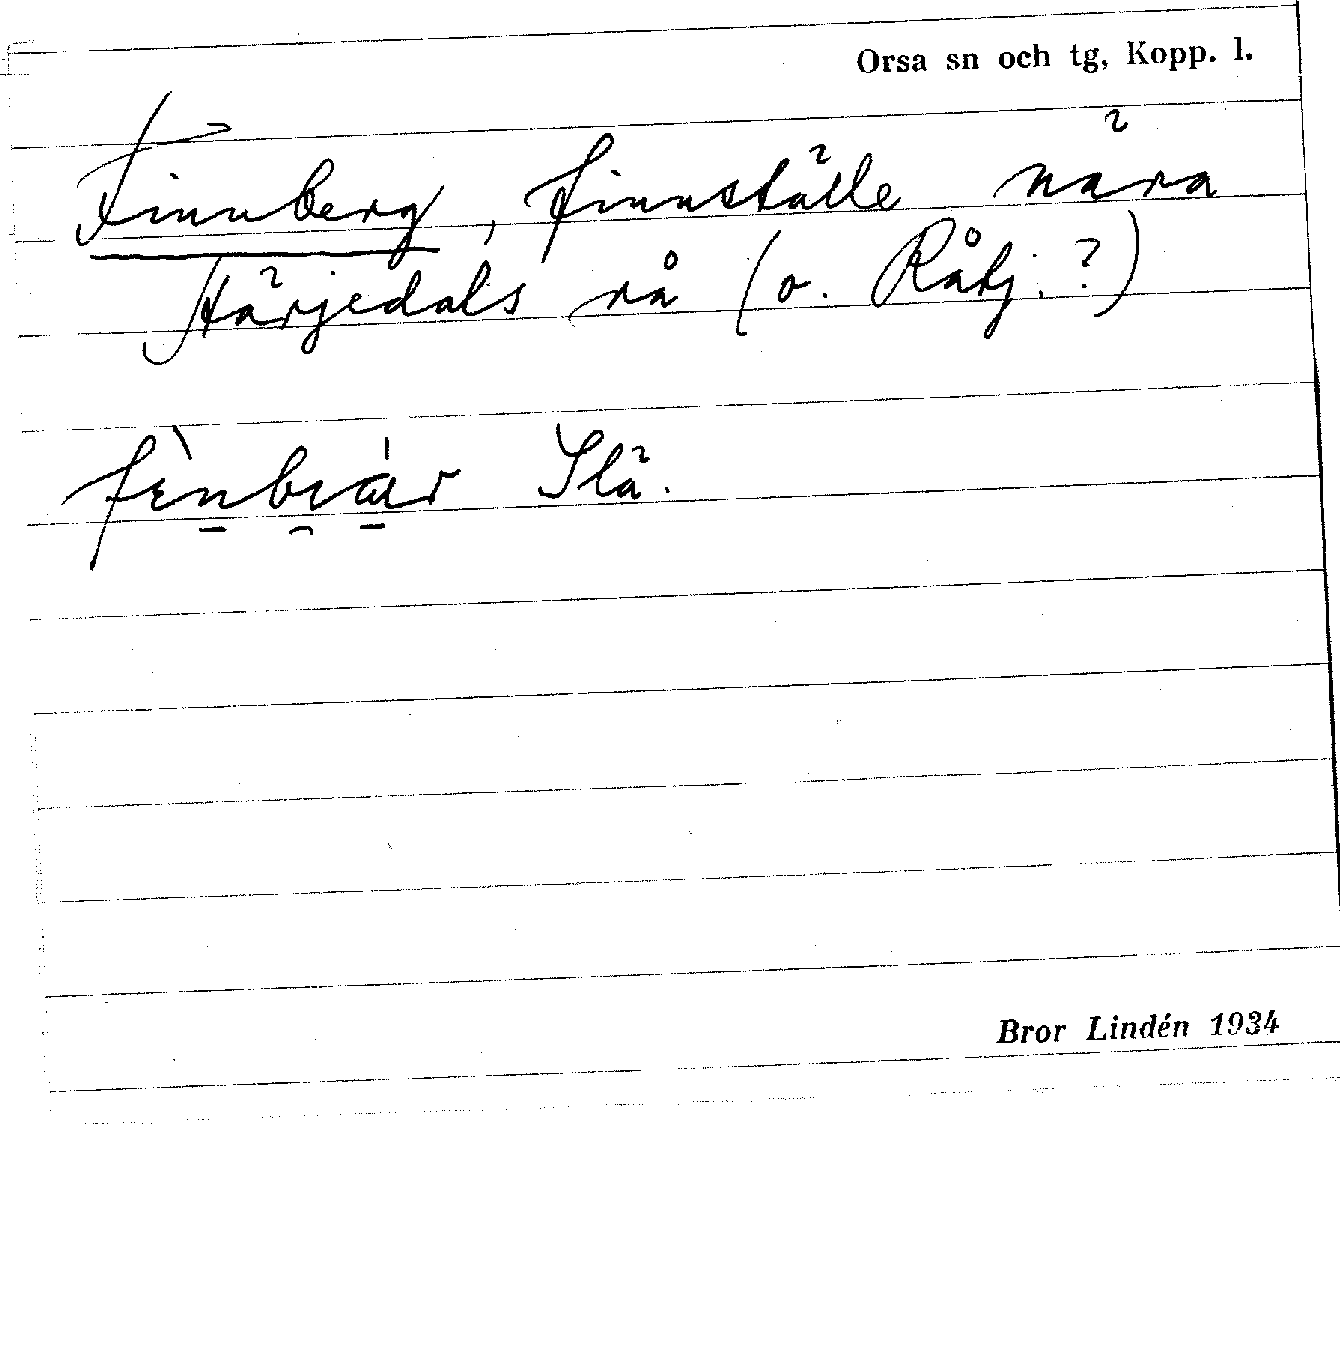 Orsa sn och tg, Kopp. l.
Finnberg, finnställe nära
Härjedals rå (o. Råtj. ?)
Slä.
Bror Lindén 1934